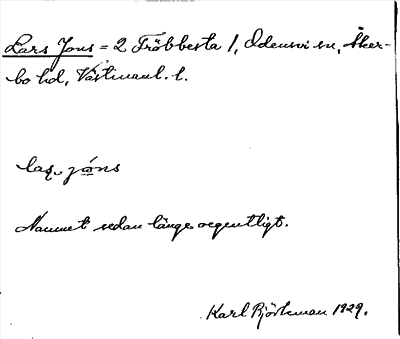 Lars Jons = 2 Fröbbesta 1, Odensvi sn, Åker-
bo hd, Västmanl. l.
las, jóns
Namnet sedan länge oegentligt.
Karl Björkman 1929.